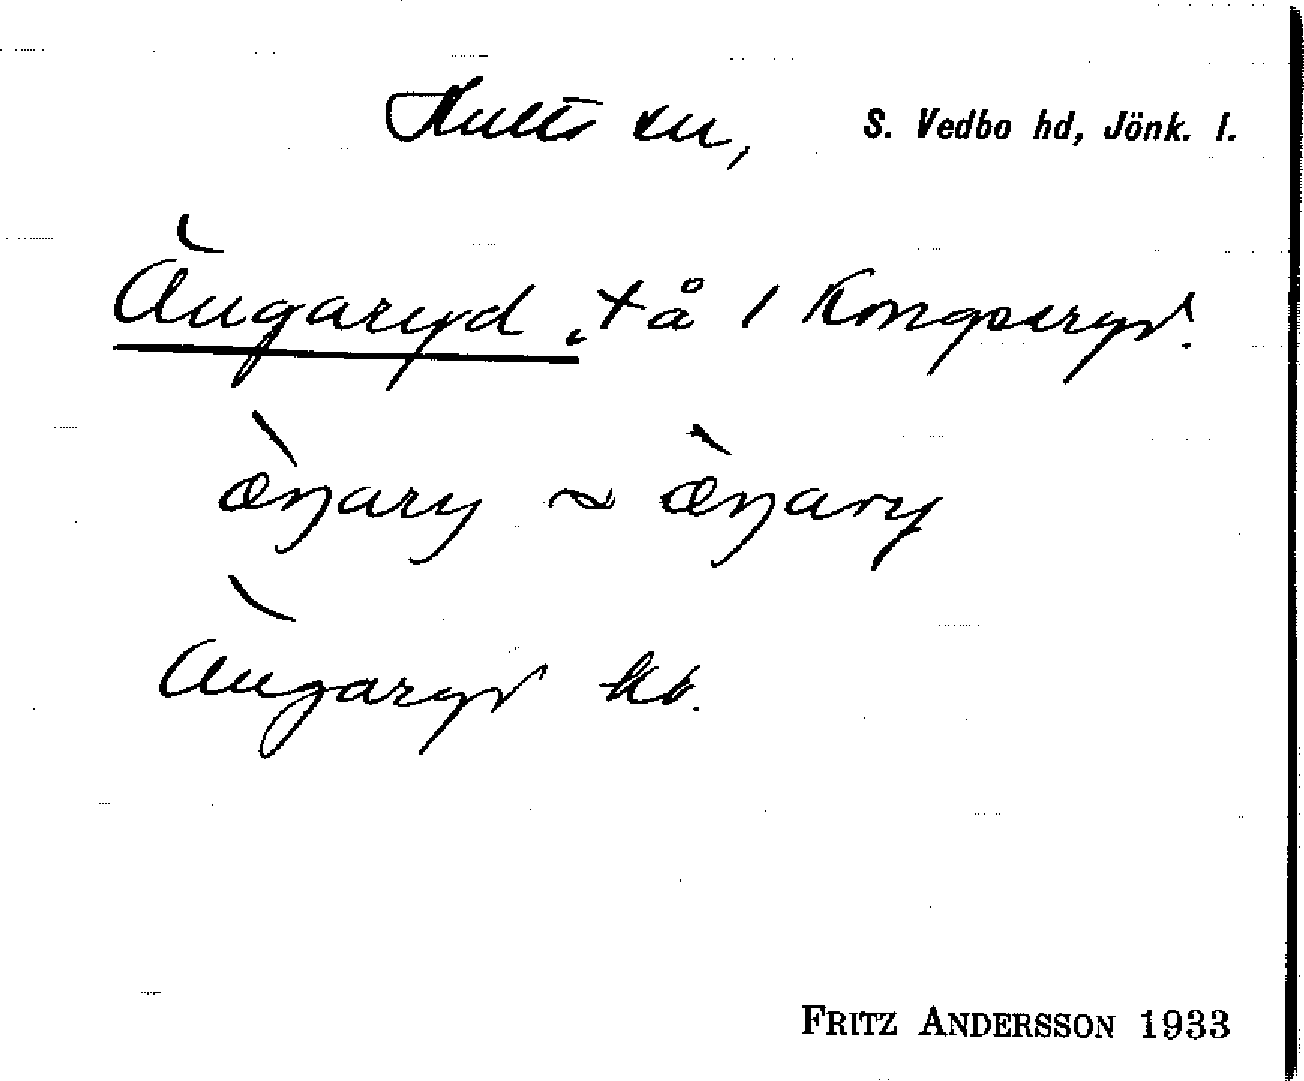 Hults sn, S. Vedbo hd, Jönk. l.
Ängaryd, tå / Kongseryd.
æ̀ŋary ~ æ̀ŋary
Ängaryd kb.
FRITZ ANDERSSON 1933